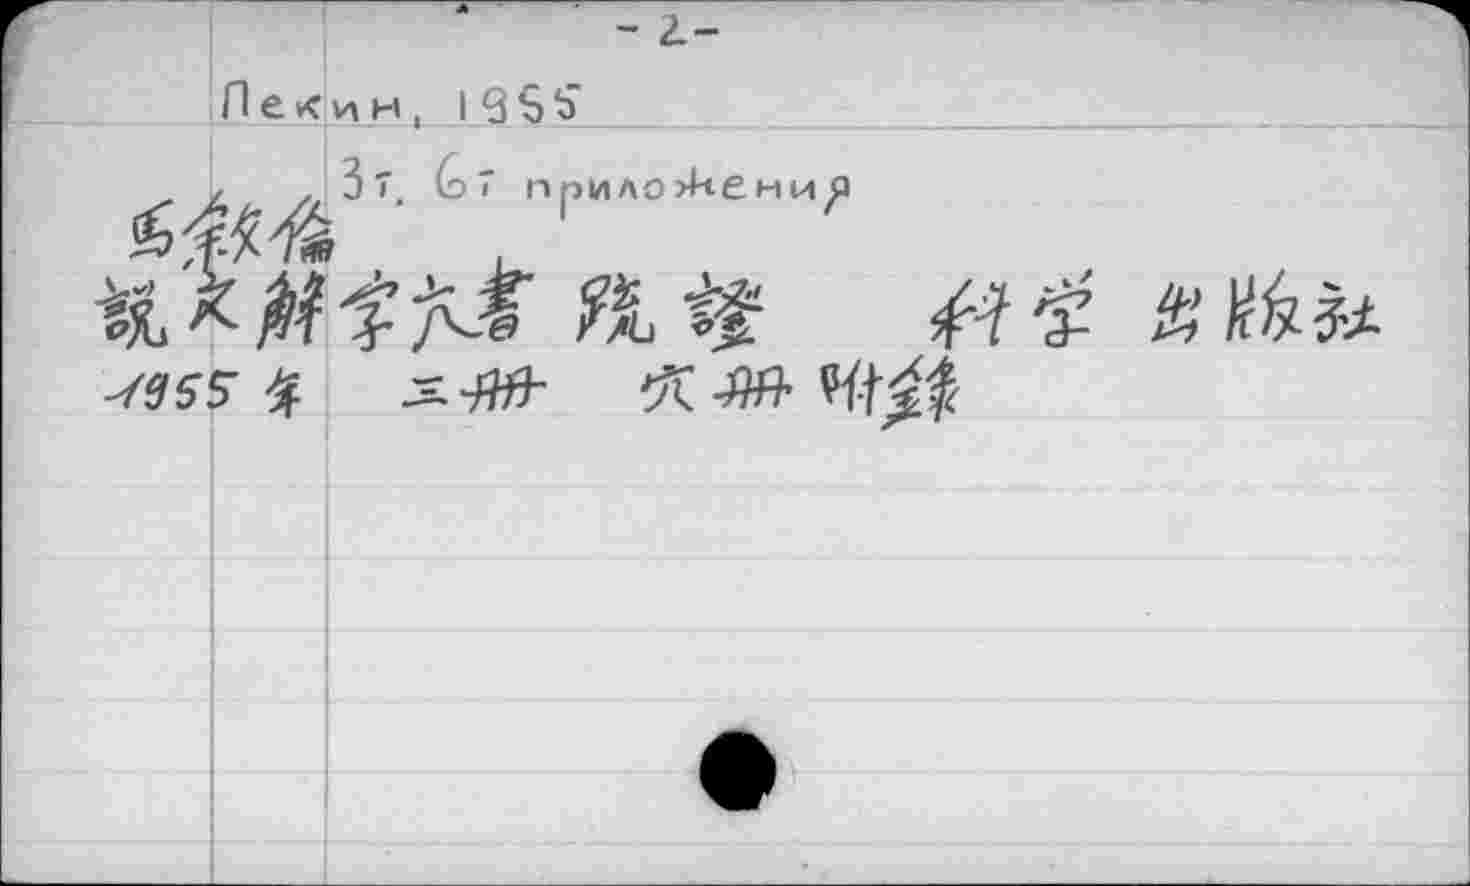 - 2 -
Пекин, 1955
3 т. 6 т приложения
馬敘倫
說文解字六書疏證 科学出版社
1955 年 三冊 六冊 附錄